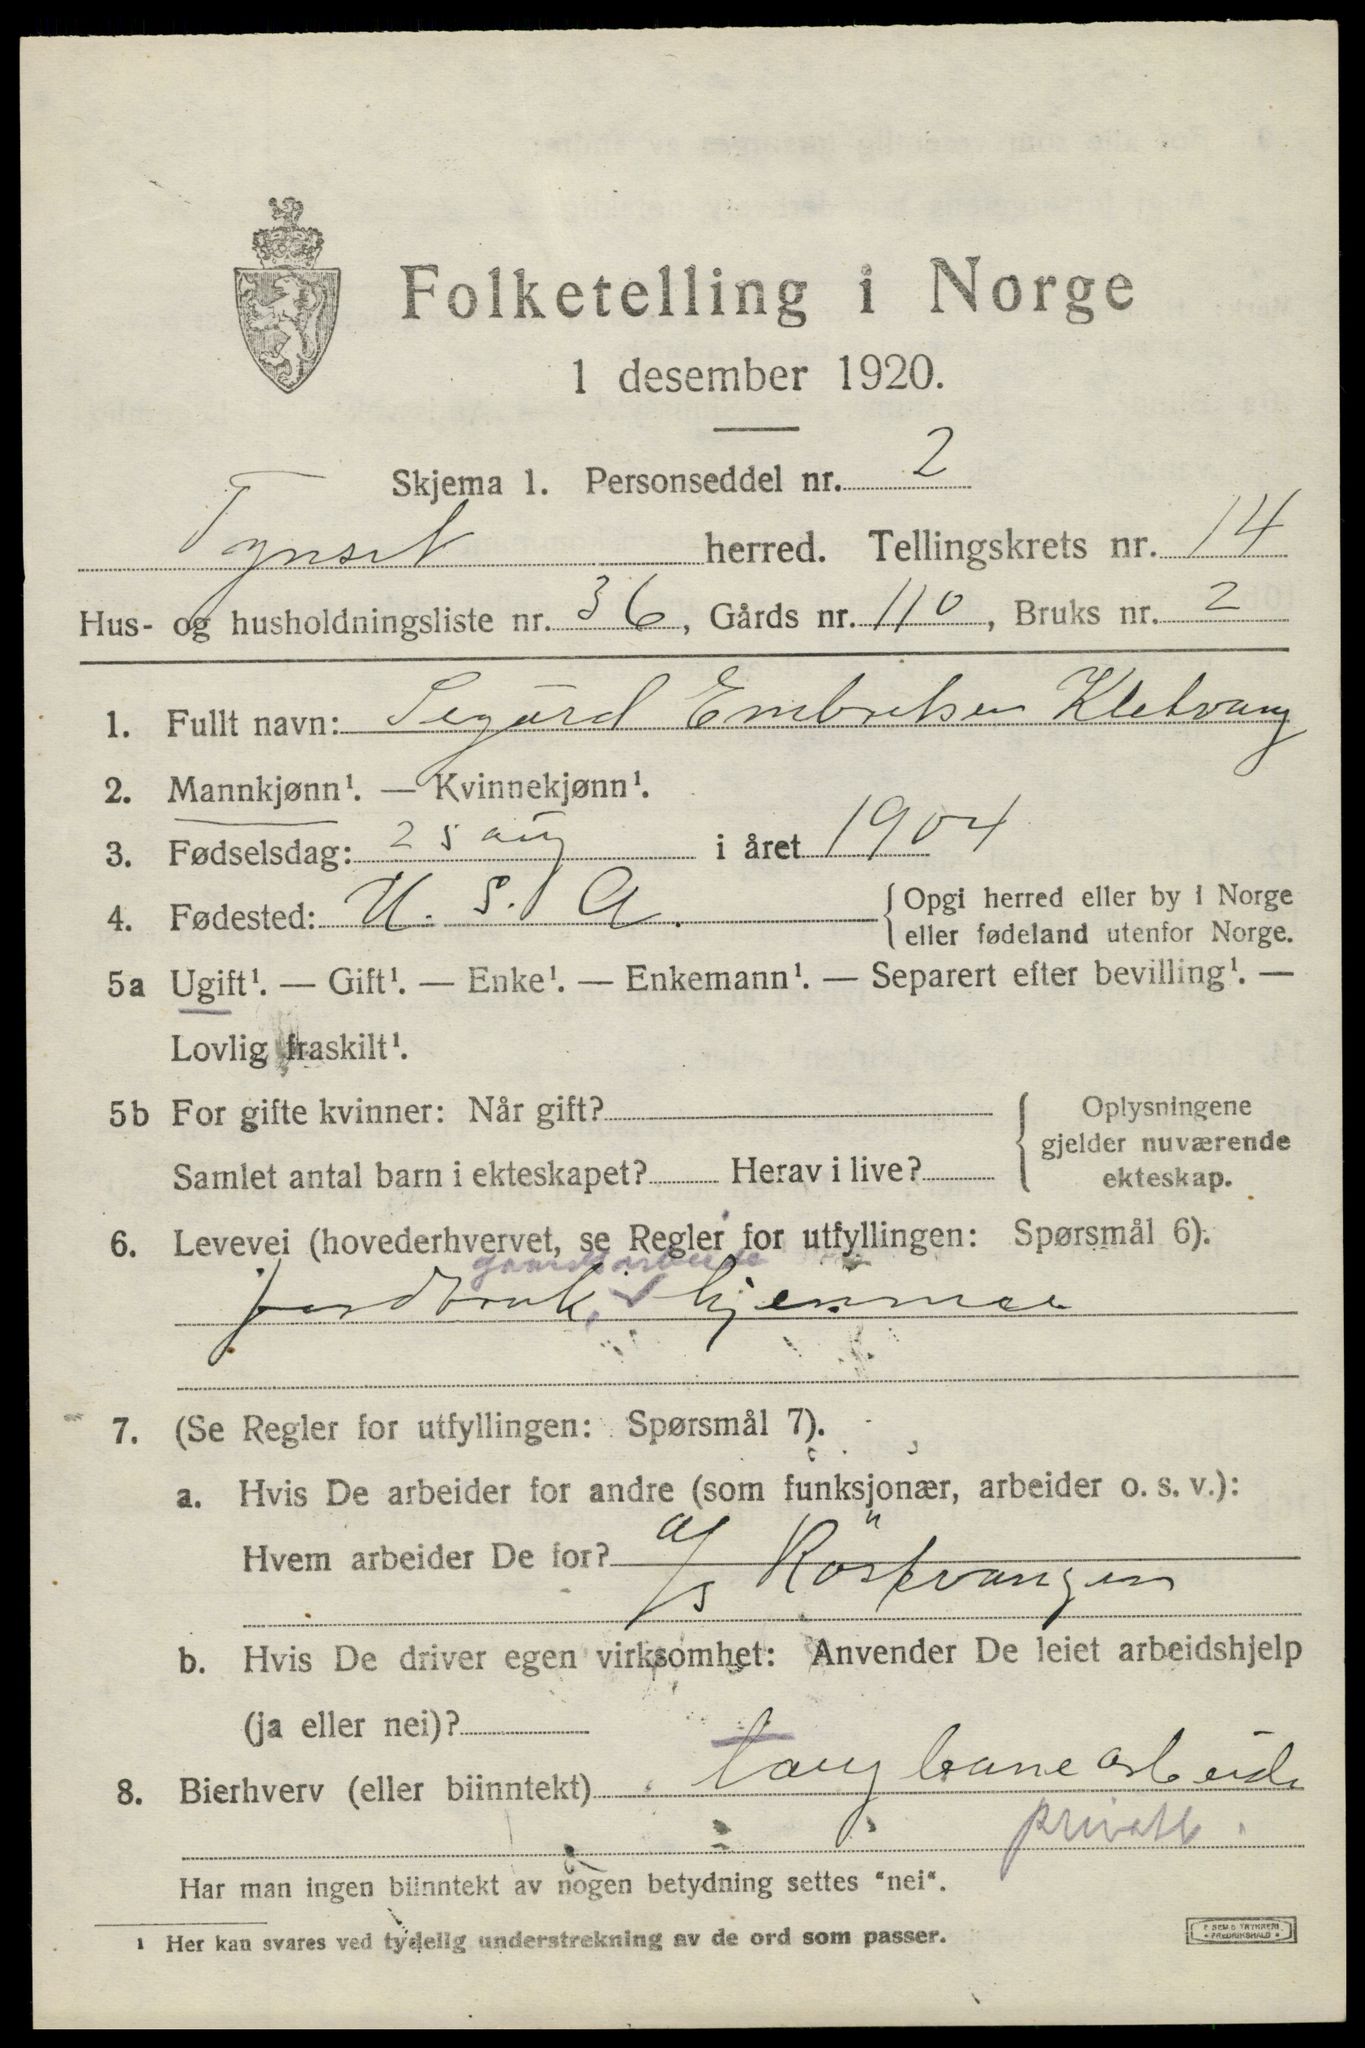 Folketelling i Norge
1 desember 1920.
Skjema 1. Personseddel nr. 2
Tynset herred. Tellingskrets nr. 14
Hus- og husholdningsliste nr. 36, Gårds nr. 110, Bruks nr. 2
1. Fullt navn: Sigurd Embretsen Kletvang
2. Mannkjønn¹. — Kvinnekjønn¹.
3. Fødselsdag: 25 aug i året 1904
4. Fødested: U. S. A. {Opgi herred eller by i Norge
eller fødeland utenfor Norge.
5a Ugift¹. — Gift¹. — Enke¹. — Enkemann¹. — Separert efter bevilling¹. —
Lovlig fraskilt¹.
5b For gifte kvinner: Når gift? { Oplysningene
gjelder nuværende
ekteskap.
Samlet antal barn i ekteskapet? Herav i live?
6. Levevei (hovederhvervet, se Regler for utfyllingen: Spørsmål 6).
gaardsarbeide
jordbruk, hjemme
7. (Se Regler for utfyllingen: Spørsmål 7).
a. Hvis De arbeider for andre (som funksjonær, arbeider o. s. v.):
Hvem arbeider De for? A/S Röstvangen
b. Hvis De driver egen virksomhet: Anvender De leiet arbeidshjelp
(ja eller nei)?
8. Bierhverv (eller biinntekt) taugbanearbeide
private.
Har man ingen biinntekt av nogen betydning settes "nei".
¹ Her kan svares ved tydelig understrekning av de ord som passer.
E. SEM'S TRYKKERI
FREDRIKSHALD